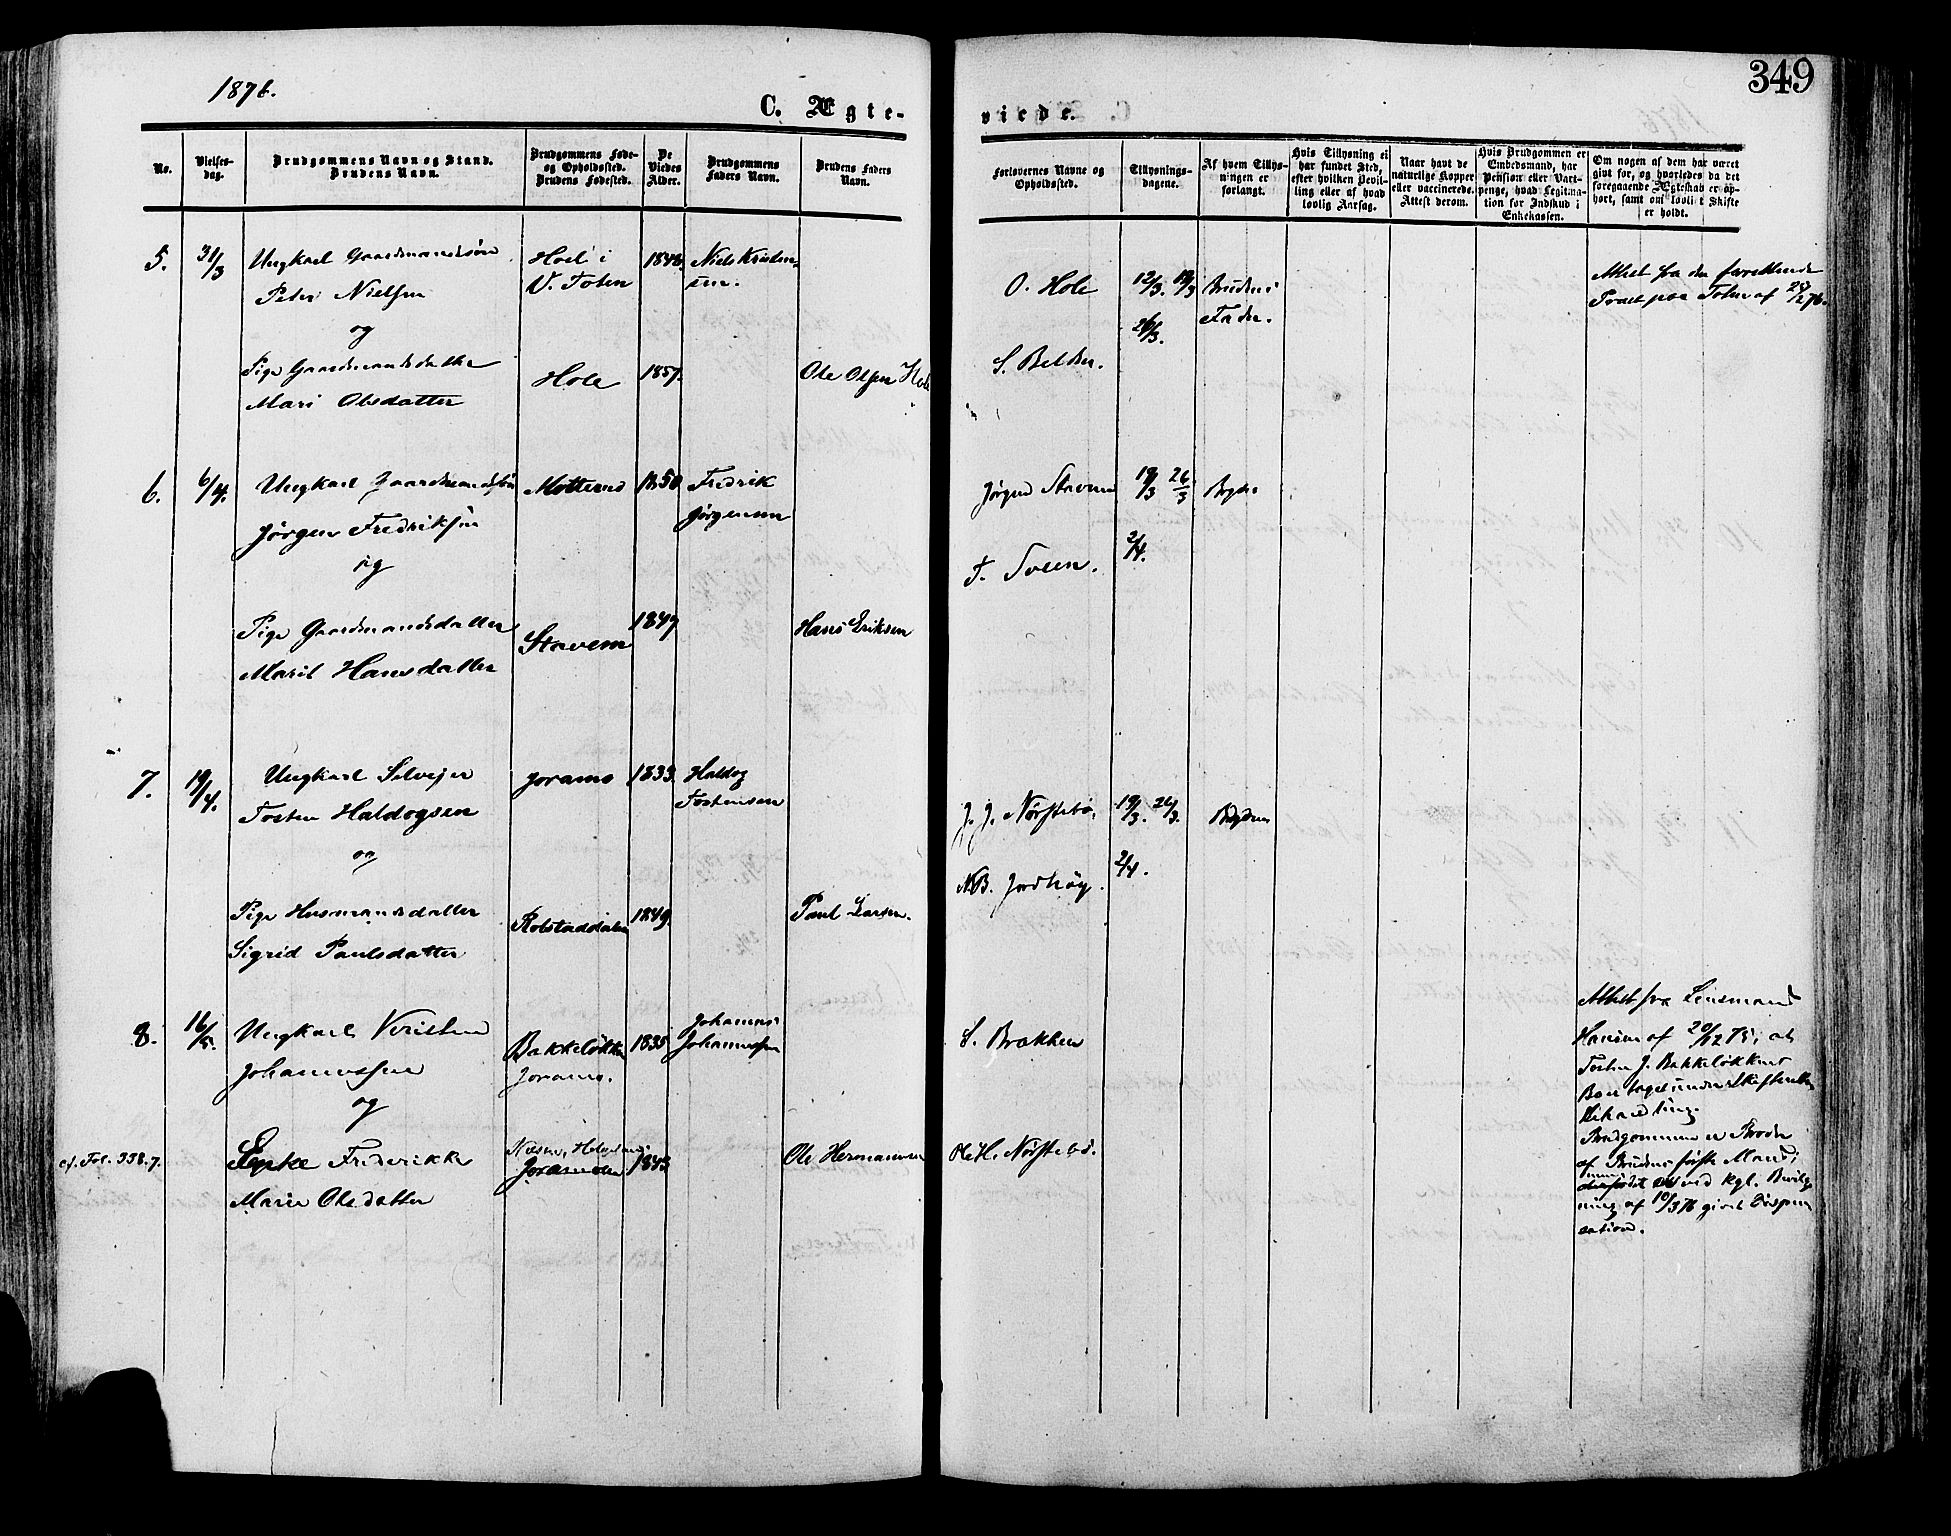 1876.
349
C. Ægte-
viede.
No.
Vielses-
dag.
Brudgommens Navn og Stand.
Brudens Navn.
Brudgommens Føde-
og Opholdssted.
Brudens Fødested.
De
Viedes
Alder.
Brudgommens
Faders Navn.
Brudens Faders
Navn.
Forlovernes Navne og
Opholdssted.
Tillysnings-
dagene.
Af hvem Tillys-
ningen er
forlangt.
Hvis Tillysning ei
har fundet Sted,
efter hvilken Bevil-
ling eller af hvad
lovlig Aarsag.
Naar havt de
naturlige Kopper
eller vaccinerede.
Attest derom.
Hvis Brudgommen er
Embedsmand, har
Pension eller Vart-
penge, hvad Legitima-
tion for Indskud i
Enkekassen.
Om nogen af dem har været
givt før, og hvorledes da det
foregaaende Ægteskab er op-
hørt, samt om lovligt Skifte
er holdt.
5. 31/3 Ungkarl Gaardmandssøn
Peder Nielsen
og
Pige Gaardmandsdatter
Mari Olsdatter
Hoel i
V. Toten
Hole
1848.
1857.
Niels Kristen-
sen.
Ole Olsen Hole
O. Hole
S. Belden.
12/3. 19/3
26/3.
Brudens
Fader.
Attest fra den forrettende
Præst paa Toten af 28/2 76.
6. 6/4. Ungkarl Gaardmandssøn
Jørgen Fredriksen
og
Pige Gaardmandsdatter
Marit Hansdatter
Mottend
Stavem
1850
1849
Fredrik
Jørgensen
Hans Eriksen
Jørgen Stavem
T. Sveen.
19/3 26/3
2/4.
7. 19/4. Ungkarl Selvejer
Tosten Haldogsen
og
Pige Husmandsdatter
Sigrid Paulsdatter
Joramo
Rolstaddalen
1833.
1849.
Haldog
Tostensen
Paul Larsen.
J. J. Nørstebø.
N.B. Jordhøy.
19/3. 26/3.
2/4.
Bygden
8. 16/5. Ungkarl Kristen
Johannessen
og
Enke Frederikke
Marie Olsdatter
Bakkeløkken
Joramo.
1835
1843.
Johannes
Johannessen
Ole Hermansen
cf. Fol. 338. 7.
S. Brækken
Ole H. Nørstebø.
Attest fra Lensmand
Hansen af 20/12 75, at
Tosten J. Bakkeløkkens
Bo er taget under Skifteretten
Behandling.
Brudgommen er Broder
af Brudens første Mand;
ved kgl. Bevilg-
ning af 10/3 76 givet Dispen-
sation.